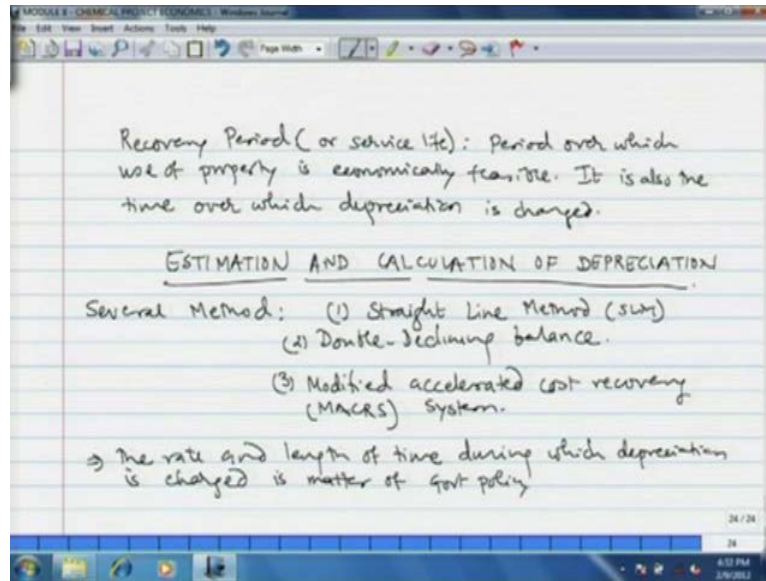 MODULE 8 - CHEMICAL PROJECT ECONOMICS - Windows Journal
File Edit View Insert Actions Tools Help
Page Width
Recovery Period (or service life): Period over which
use of property is economically feasible. It is also the
time over which depreciation is charged.
ESTIMATION AND CALCULATION OF DEPRECIATION
Several Method: (1) Straight Line Method (SLM)
(2) Double-Declining balance.
(3) Modified accelerated cost recovery
(MACRS) System.
⇒ The rate and length of time during which depreciation
is charged is matter of Govt policy
24 / 24
24
6:32 PM
2/9/2012